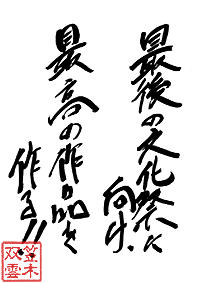 最後の文化祭に
向け、
最高の作品を
作る!!
笠木
双雲